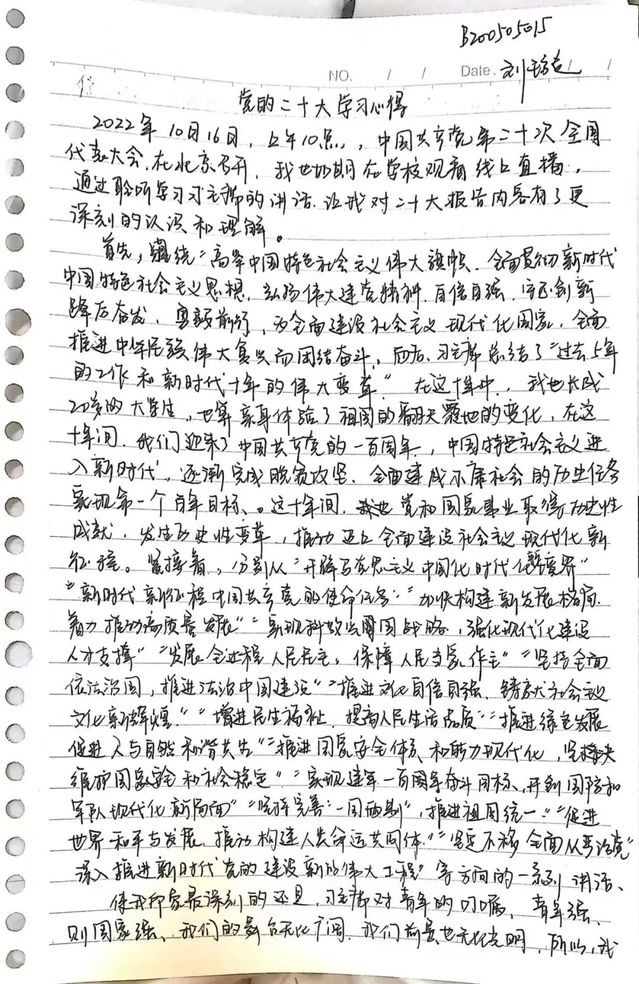 B200505015
NO. / / Date. 刘
党的二十大学习心得
2022年10月16日,上午10点,中国共产党第二十次全国
代表大会在北京召开,我也如期在学校观看线上直播,
通过聆听学习习主席的讲话让我对二十大报告内容有了更
深刻的认识和理解。
首先,围绕"高举中国特色社会主义伟大旗帜、全面贯彻新时代
中国特色社会主义思想,弘扬伟大建党精神,自信自强、守正创新
踔厉奋发、勇毅前行,为全面建设社会主义现代化国家、全面
推进中华民族伟大复兴而团结奋斗,而后,习主席总结了"过去5年
的工作和新时代十年的伟大变革"在这十年中,我也长成
20岁的大学生,也算亲身体验了祖国的翻天覆地的变化,在这
十年间,我们迎来了中国共产党的一百周年,中国特色社会主义进
入新时代,逐渐完成脱贫攻坚、全面建成小康社会的历史任务
实现第一个百年目标、。这十年间,党和国家事业取得历史性
成就,发生历史性变革,推动迈上全面建设社会主义现代化新
征程。紧接着,分别从"开辟马克思主义中国化时代化新境界"
"新时代新征程中国共产党的使命任务""加快构建新发展格局
着力推动高质量发展""实施科教兴国战略,强化现代化建设
人才支撑""发展全过程人民民主,保障人民当家作主""坚持全面
依法治国,推进法治中国建设""推进文化自信自强、铸就社会主义
文化新辉煌""增进民生福祉,提高人民生活品质""推进绿色发展
促进人与自然和谐共生""推进国家安全体系和能力现代化,坚持决
维护国家安全和社会稳定""实现建军一百周年奋斗目标、开创国防和
军队现代化新局面""坚持完善"一国两制",推进祖国统一""促进
世界和平与发展,推动构建人类命运共同体""坚定不移全面从严治党"
深入推进新时代党的建设新的伟大工程"等方向的一系列讲话、
使我印象最深刻的还是,习主席对青年的叮嘱,青年强、
则国家强、我们的舞台无比广阔,我们前景也无比光明,所以,我